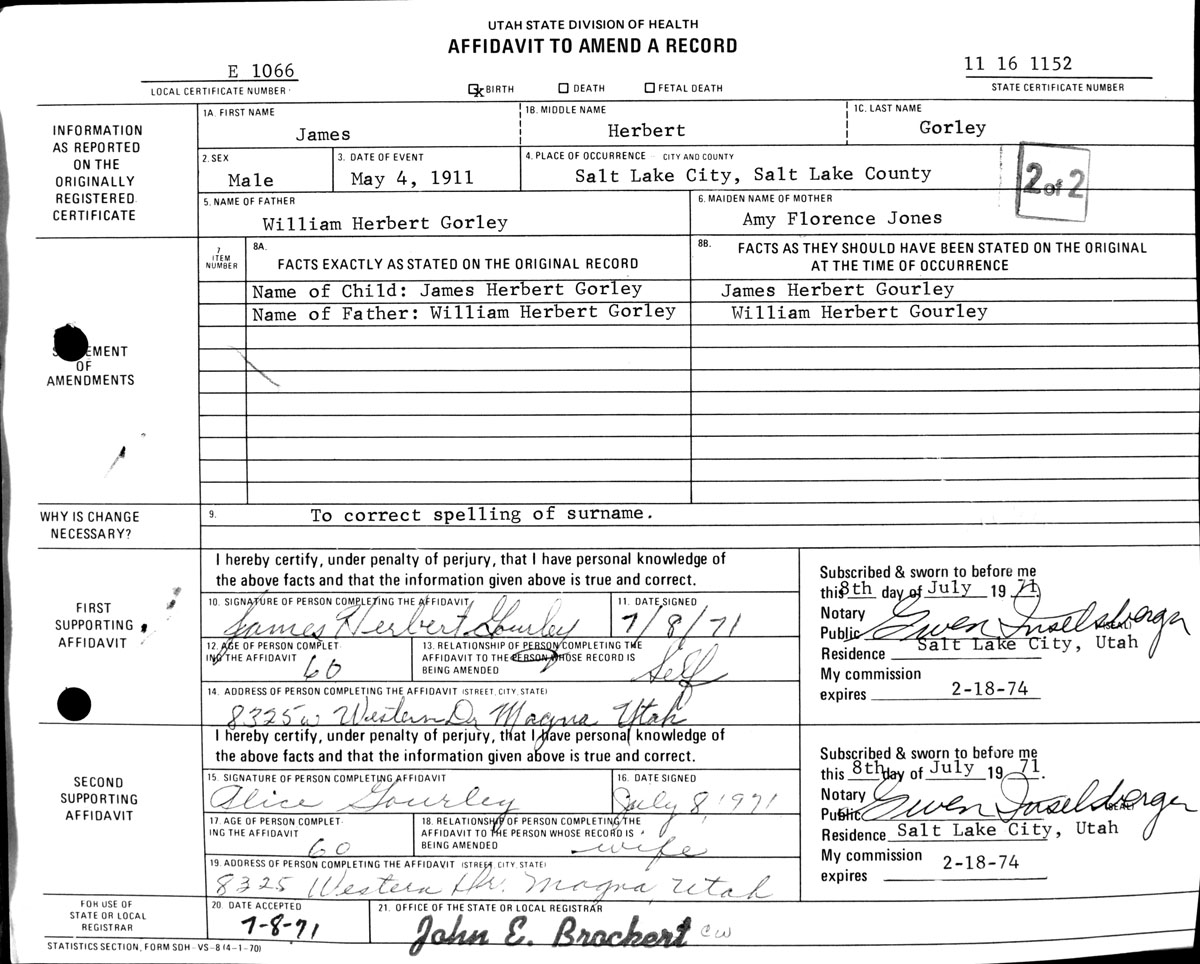 UTAH STATE DIVISION OF HEALTH
AFFIDAVIT TO AMEND A RECORD
E 1066
LOCAL CERTIFICATE NUMBER
x BIRTH DEATH FETAL DEATH
11 16 1152
STATE CERTIFICATE NUMBER
INFORMATION
AS REPORTED
ON THE
ORIGINALLY
REGISTERED
CERTIFICATE
1A. FIRST NAME
James
1B. MIDDLE NAME
Herbert
1C. LAST NAME
Gorley
2. SEX
Male
3. DATE OF EVENT
May 4, 1911
4. PLACE OF OCCURRENCE - CITY AND COUNTY
Salt Lake City, Salt Lake County
2 of 2
5. NAME OF FATHER
William Herbert Gorley
6. MAIDEN NAME OF MOTHER
Amy Florence Jones
OF
AMENDMENTS
7
ITEM
NUMBER
8A.
FACTS EXACTLY AS STATED ON THE ORIGINAL RECORD
8B. FACTS AS THEY SHOULD HAVE BEEN STATED ON THE ORIGINAL
AT THE TIME OF OCCURRENCE
Name of Child: James Herbert Gorley
James Herbert Gourley
Name of Father: William Herbert Gorley
William Herbert Gourley
WHY IS CHANGE
NECESSARY?
9. To correct spelling of surname.
FIRST
SUPPORTING
AFFIDAVIT
I hereby certify, under penalty of perjury, that I have personal knowledge of
the above facts and that the information given above is true and correct.
10. SIGNATURE OF PERSON COMPLETING THE AFFIDAVIT
James Herbert Gourley
11. DATE SIGNED
7/8/71
12. AGE OF PERSON COMPLET-
ING THE AFFIDAVIT
60
13. RELATIONSHIP OF PERSON COMPLETING THE
AFFIDAVIT TO THE PERSON WHOSE RECORD IS
BEING AMENDED
Self
14. ADDRESS OF PERSON COMPLETING THE AFFIDAVIT (STREET, CITY, STATE)
8325 W Western Dr Magna Utah
Subscribed & sworn to before me
this 8th day of July 19 71
Notary
Public Gwen Inselsberger
Residence Salt Lake City, Utah
My commission
expires 2-18-74
SECOND
SUPPORTING
AFFIDAVIT
I hereby certify, under penalty of perjury, that I have personal knowledge of
the above facts and that the information given above is true and correct.
15. SIGNATURE OF PERSON COMPLETING AFFIDAVIT
Alice Gourley
16. DATE SIGNED
July 8, 1971
17. AGE OF PERSON COMPLET-
ING THE AFFIDAVIT
60
18. RELATIONSHIP OF PERSON COMPLETING THE
AFFIDAVIT TO THE PERSON WHOSE RECORD IS
BEING AMENDED
wife
19. ADDRESS OF PERSON COMPLETING THE AFFIDAVIT (STREET, CITY, STATE)
8325 Western Dr. Magna, Utah
Subscribed & sworn to before me
this 8th day of July 19 71.
Notary
Public Gwen Inselsberger
Residence Salt Lake City, Utah
My commission
expires 2-18-74
FOR USE OF
STATE OR LOCAL
REGISTRAR
20. DATE ACCEPTED
7-8-71
21. OFFICE OF THE STATE OR LOCAL REGISTRAR
John E. Brockert CW
STATISTICS SECTION, FORM SDH-VS-8 (4-1-70)